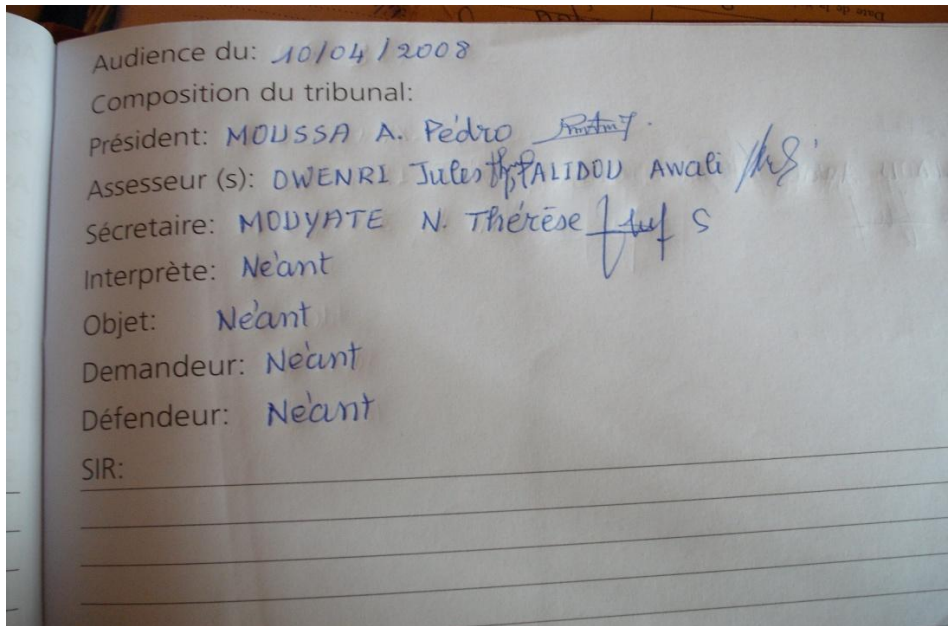 Audience du: 10/04/2008
Composition du tribunal:
Président: MOUSSA A. Pédro
Assesseur (s): OWENRI Jules PALIDOU Awali
Sécretaire: MODYATE N. Thérèse
Interprète: Néant
Objet: Néant
Demandeur: Néant
Défendeur: Néant
SIR: